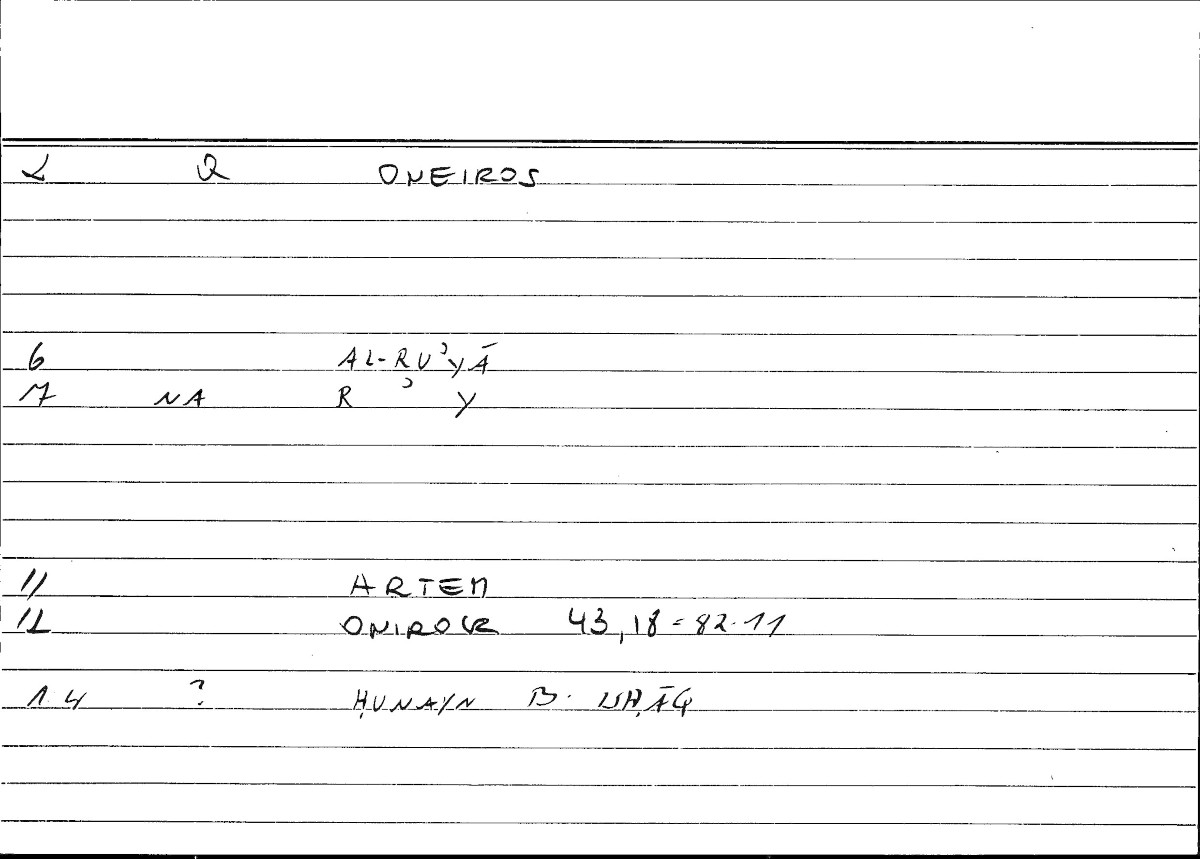 2 Q ONEIROS
6 AL-RUʾYĀ
7 NA R ʾ Y
11 ARTEM
12 ONIROCR 43,18 = 82.11
14 ? ḤUNAYN B. ISḤĀQ